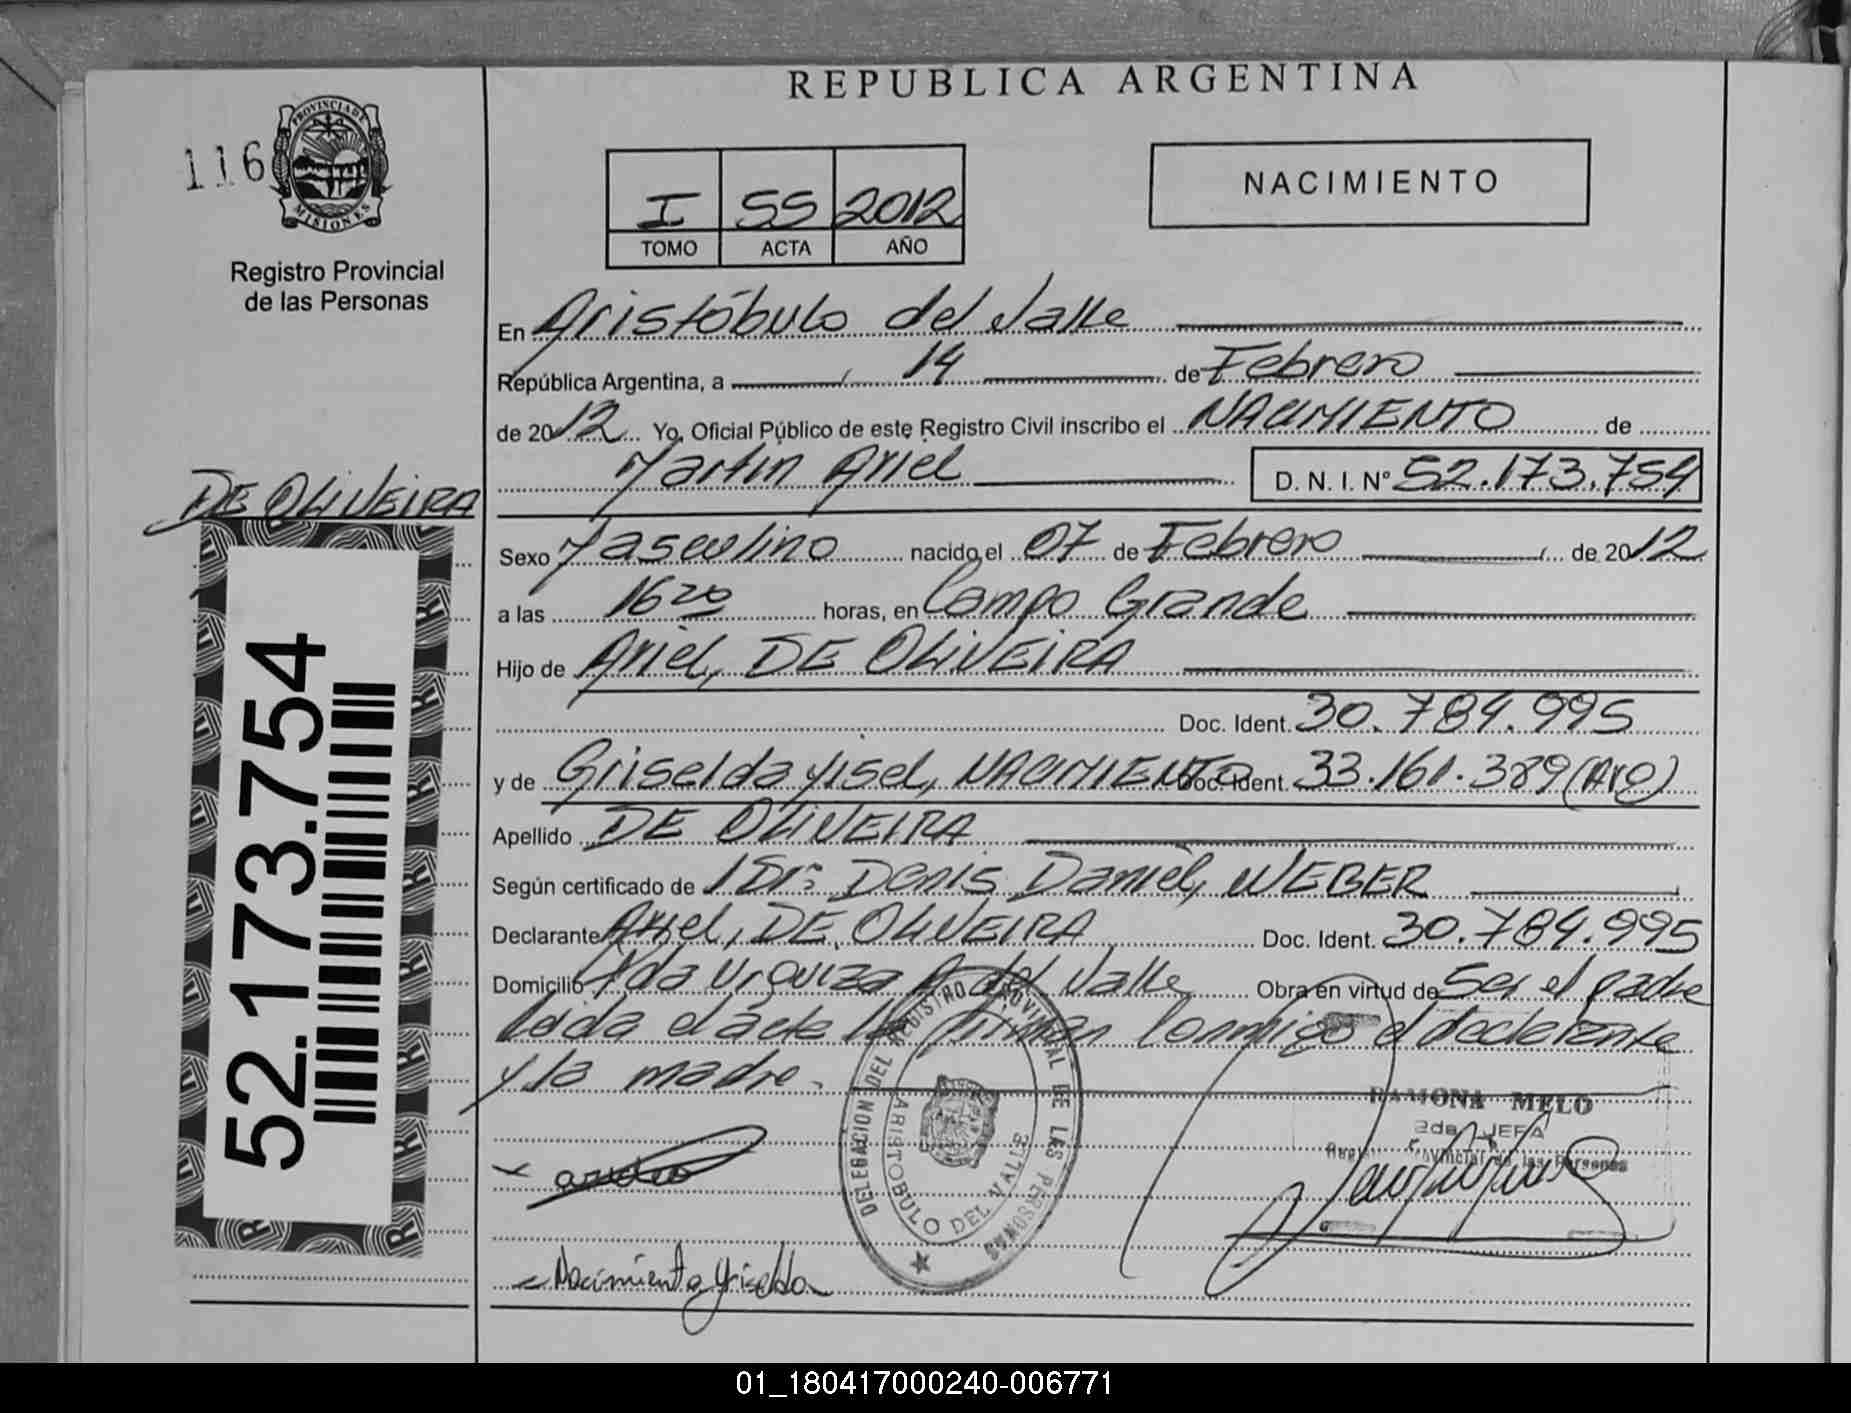 REPUBLICA ARGENTINA
116
PROVINCIA DE
MISIONES
Registro Provincial
de las Personas
I 55 2012
TOMO ACTA AÑO
NACIMIENTO
En Aristóbulo del Valle
República Argentina, a 14 de Febrero
de 2012 Yo, Oficial Público de este Registro Civil inscribo el NACIMIENTO de
Martin Ariel D. N. I. Nº 52.173.754
DE OLIVEIRA
52.173.754
Sexo Masculino nacido el 07 de Febrero de 2012
a las 16 20 horas, en Campo Grande
Hijo de Ariel, DE OLIVEIRA
Doc. Ident. 30.784.995
y de Griselda Yisel, NACIMIENTO Doc. Ident. 33.161.389 (Arg)
Apellido DE OLIVEIRA
Según certificado de Dr: Denis Daniel, WEBER
Declarante Ariel, DE OLIVEIRA Doc. Ident. 30.784.995
Domicilio Avda Urquiza A. del Valle Obra en virtud de Ser el padre
Leida el acta la firman conmigo el declarante
y la madre.
DELEGACION DEL REGISTRO PROVINCIAL DE LAS PERSONAS
ARISTOBULO DEL VALLE
RAMONA MELO
2da JEFA
Registro Provincial de las Personas
Nacimiento Griselda
01_180417000240-006771